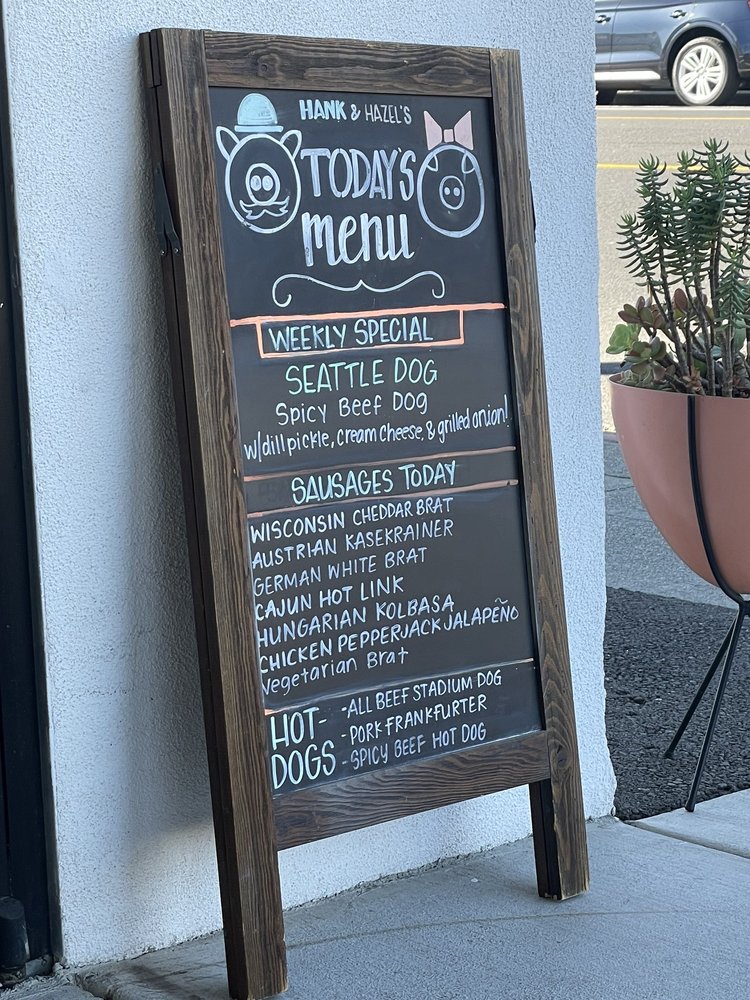 HANK & HAZEL'S
TODAY'S
menu
WEEKLY SPECIAL
SEATTLE DOG
Spicy Beef Dog
w/dill pickle, cream cheese, & grilled onion!
SAUSAGES TODAY
WISCONSIN CHEDDAR BRAT
AUSTRIAN KASEKRAINER
GERMAN WHITE BRAT
CAJUN HOT LINK
HUNGARIAN KOLBASA
CHICKEN PEPPERJACK JALAPEÑO
Vegetarian Brat
HOT-
DOGS
-ALL BEEF STADIUM DOG
-PORK FRANKFURTER
-SPICY BEEF HOT DOG